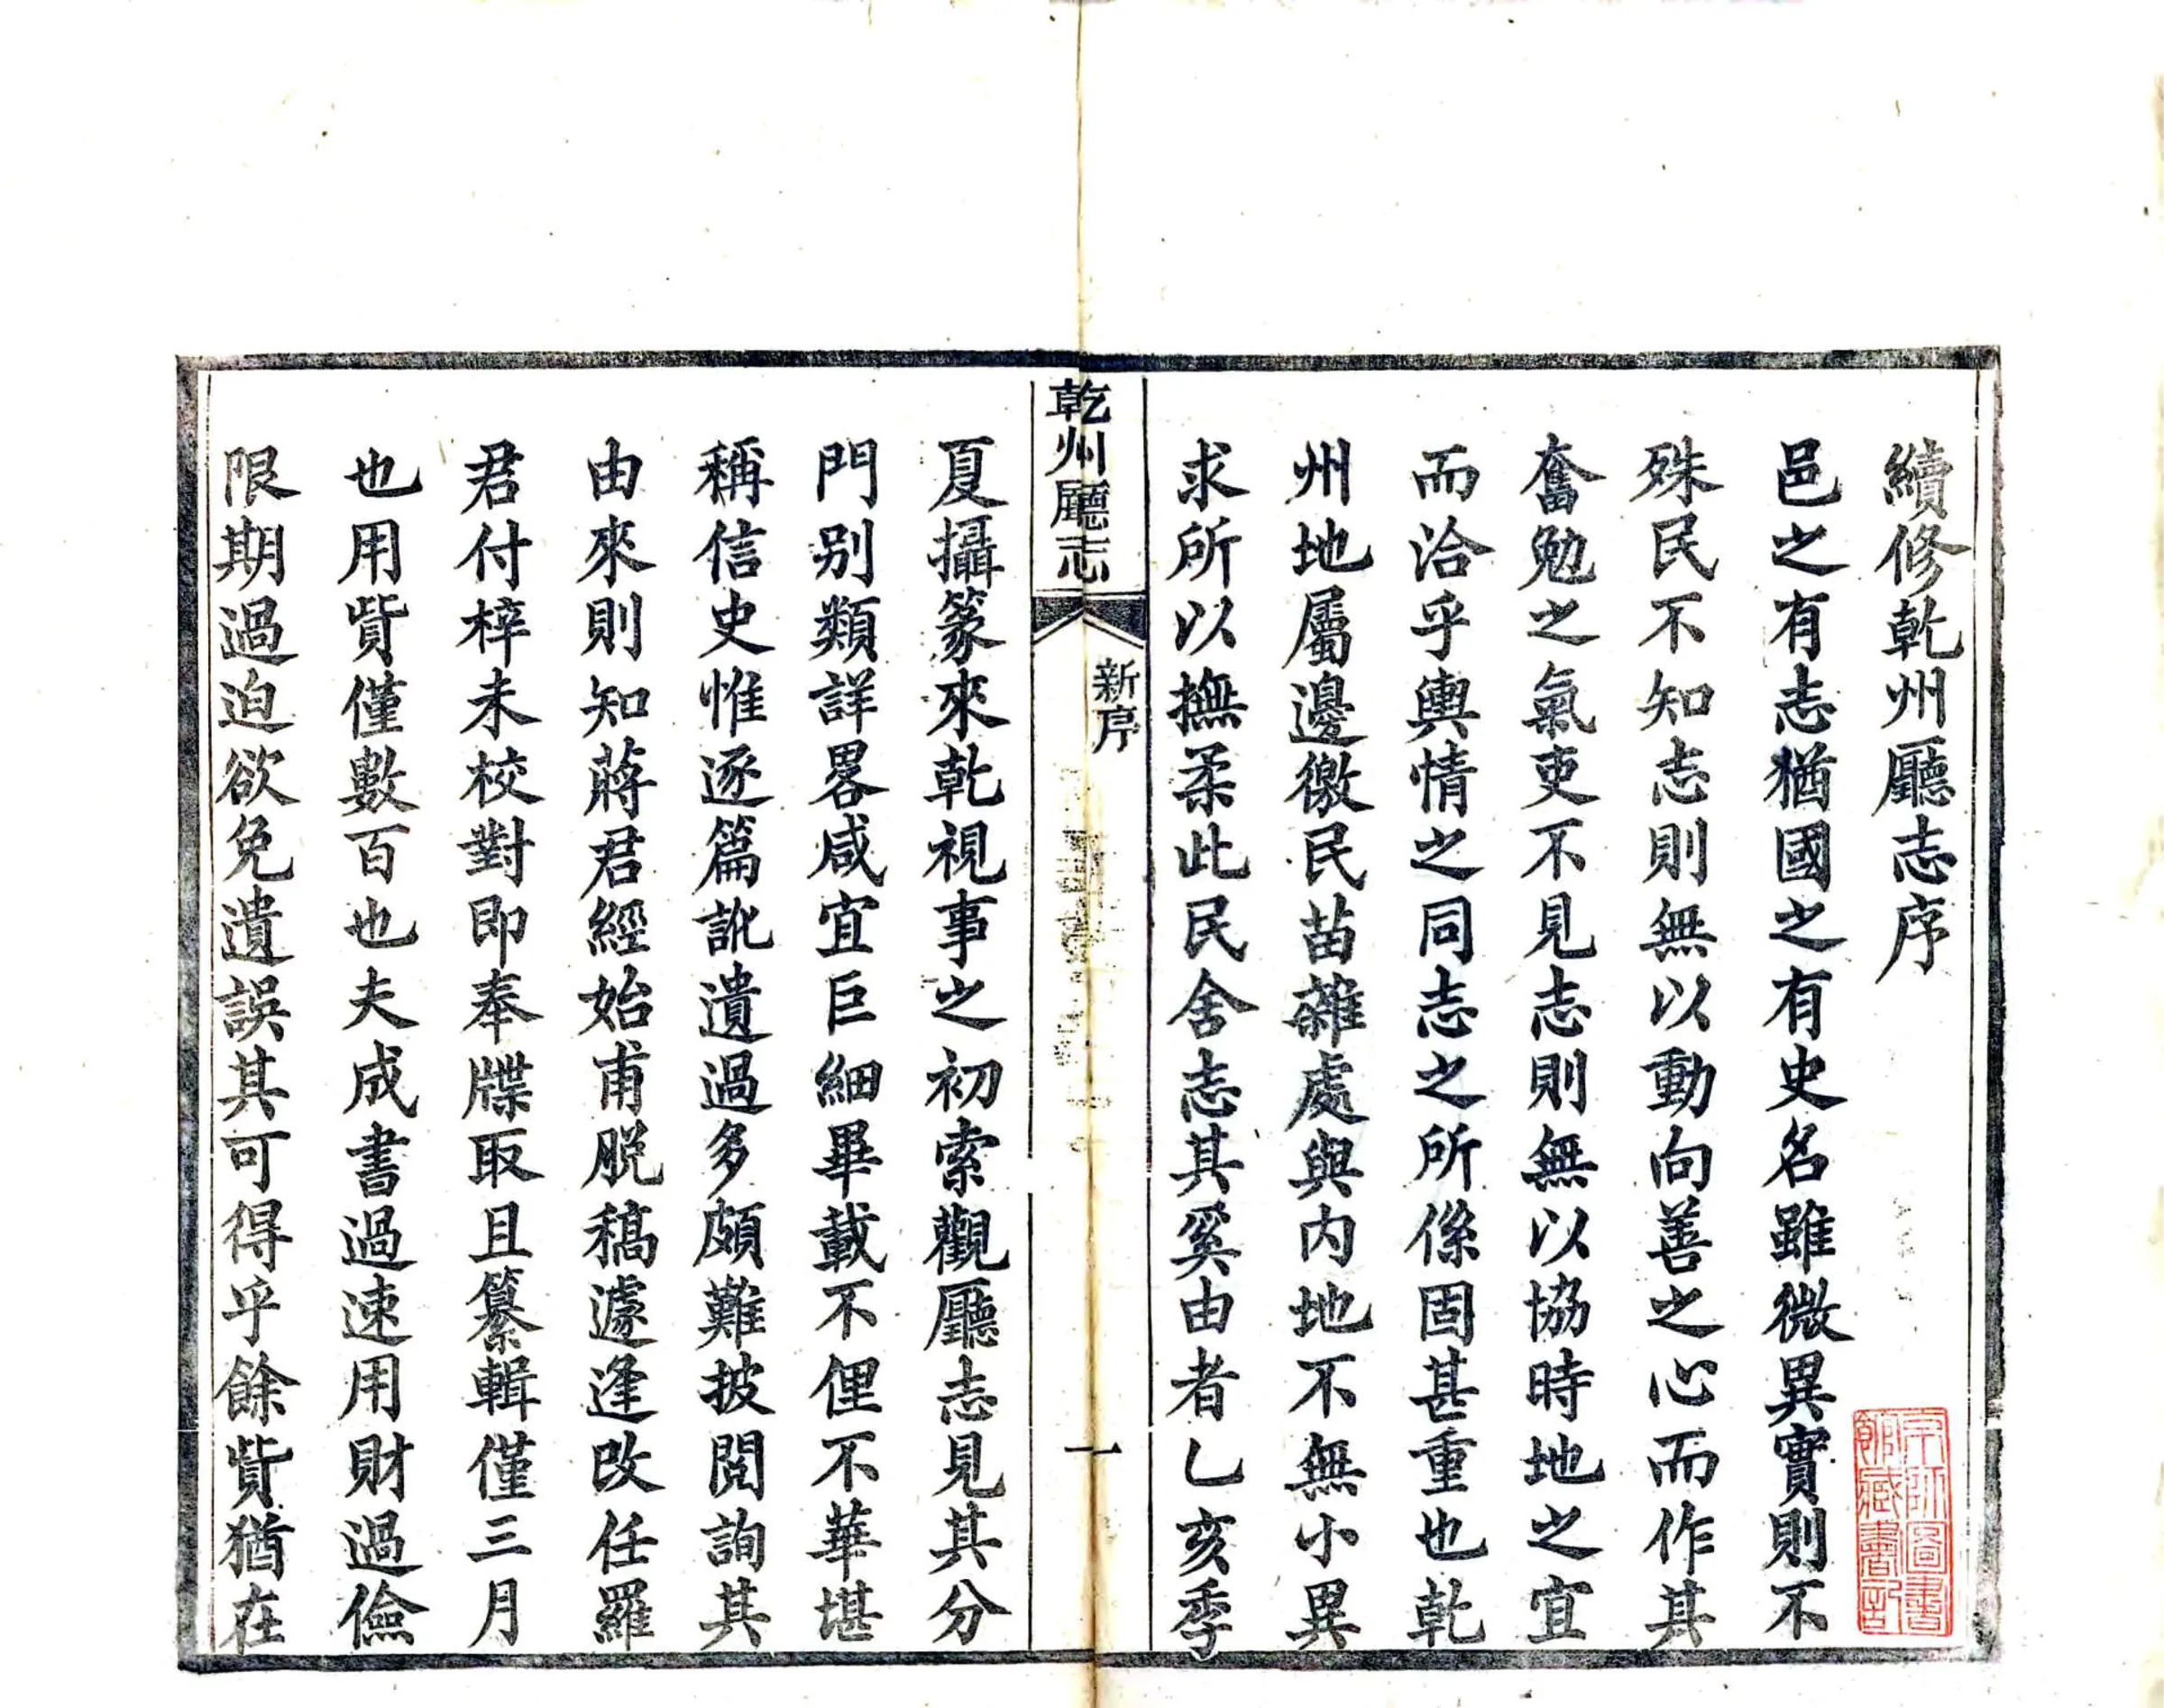 續修乾州廳志序
邑之有志猶國之有史名雖微異實則不
殊民不知志則無以動向善之心而作其
奮勉之氣吏不見志則無以協時地之宜
而洽乎輿情之同志之所係固甚重也乾
州地屬邊徼民苗雜處與内地不無小異
求所以撫柔此民舍志其奚由者乙亥季
乾州廳志
新序
一
夏攝篆來乾視事之初索觀廳志見其分
門别類詳畧咸宜巨細畢載不俚不華堪
稱信史惟逐篇訛遺過多頗難披閱詢其
由來則知蔣君經始甫脱稿遽逢改任羅
君付梓未校對即奉牒取且纂輯僅三月
也用貲僅數百也夫成書過速用財過儉
限期過迫欲免遺誤其可得乎餘貲猶在